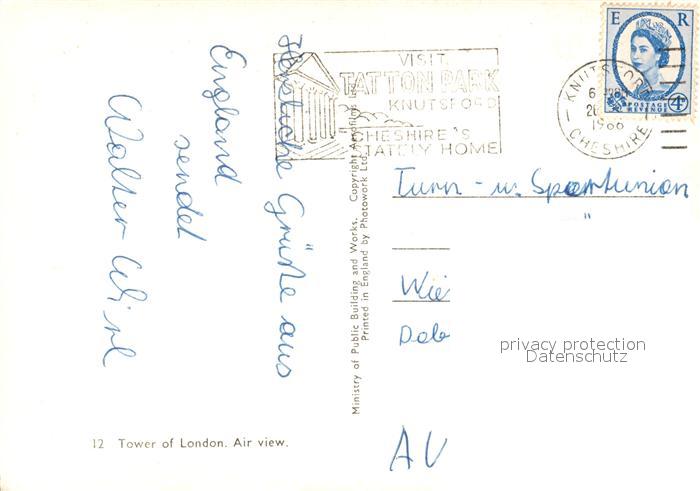 Herzliche Grüße aus
England
sendet
Walter
VISIT
TATTON PARK
KNUTSFORD
CHESHIRE'S
STATELY HOME
KNUTSFORD
1966
CHESHIRE
E R
POSTAGE
REVENUE
4D
Turn- u. Sportunion
"
Wie
Dab
privacy protection
Datenschutz
AV
Ministry of Public Building and Works. Copyright Aerofilms Ltd.
Printed in England by Photowork Ltd.
12 Tower of London. Air view.